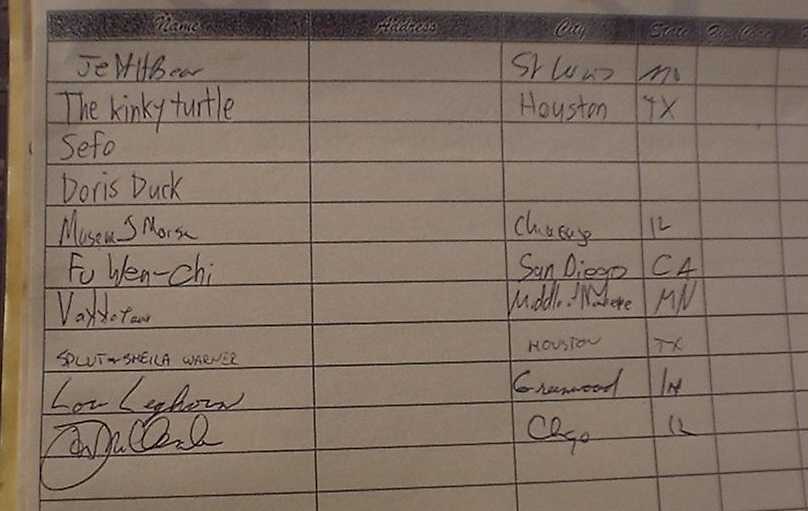 Name Address City State Zip Code
St Louis Mo
The kinky turtle Houston TX
Sefo
Doris Duck
Chicago IL
Fu Wen-Chi San Diego CA
Middle of Nowhere MN
SPLUT & SHEILA WARNER HOUSTON TX
Lou Leghorn Greenwood IN
Chgo IL